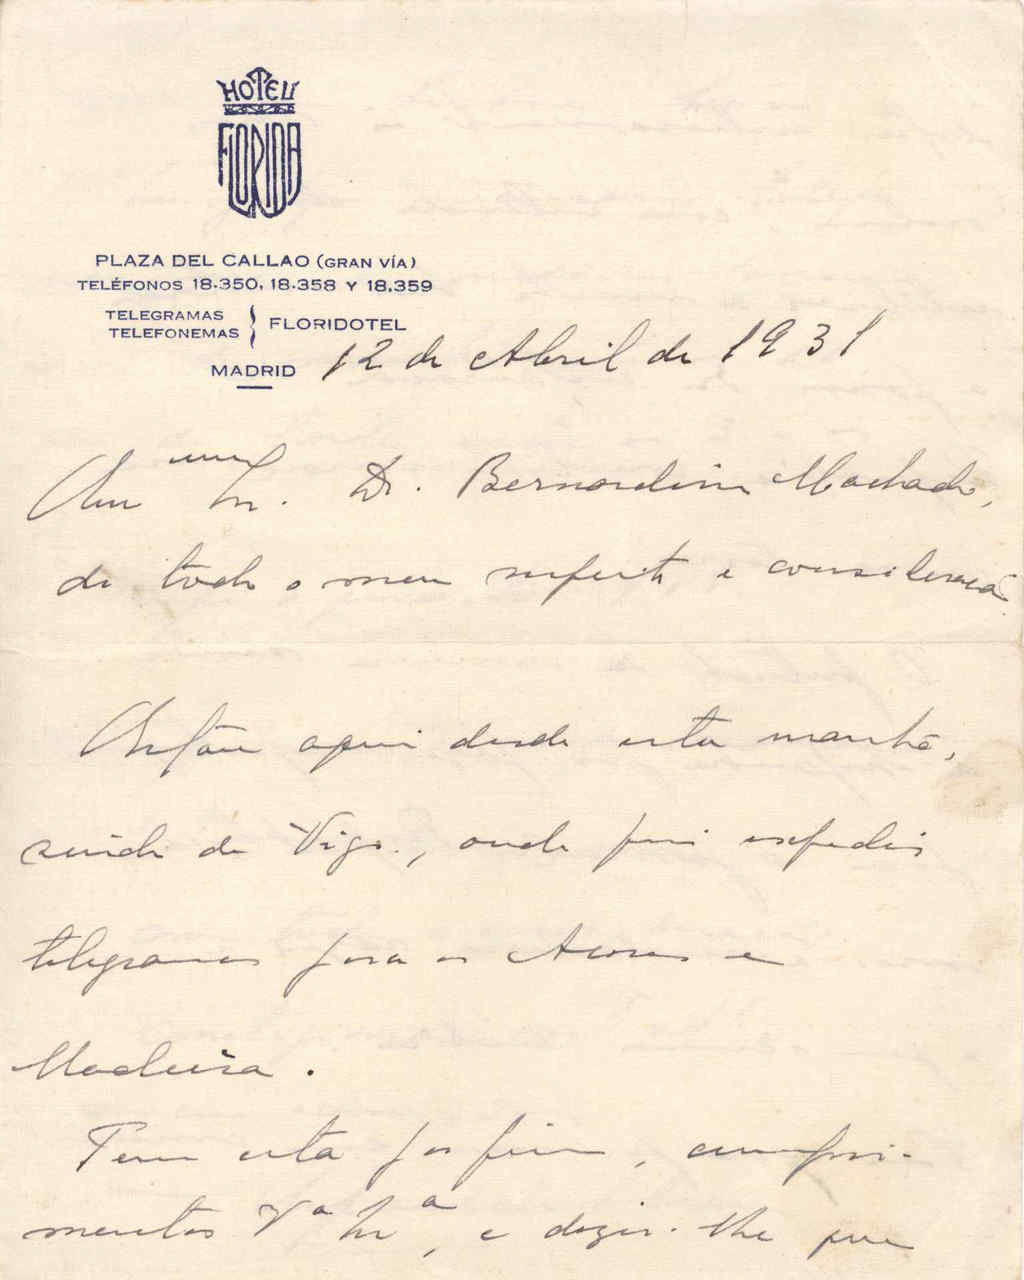 HOTEL
FLORIDA
PLAZA DEL CALLAO (GRAN VÍA)
TELÉFONOS 18.350, 18.358 Y 18.359
TELEGRAMAS
TELEFONEMAS
FLORIDOTEL
MADRID 12 de Abril de 1931
Sr. Dr. Bernardino Machado,
de todo o meu respeito e consideração
aqui desde esta manhã,
vindo de Vigo, onde fui expedir
telegramas para os Açores e
Madeira.
Tem esta por fim, cumpri-
mentar V.ª Ex.ª, e dizer-lhe que